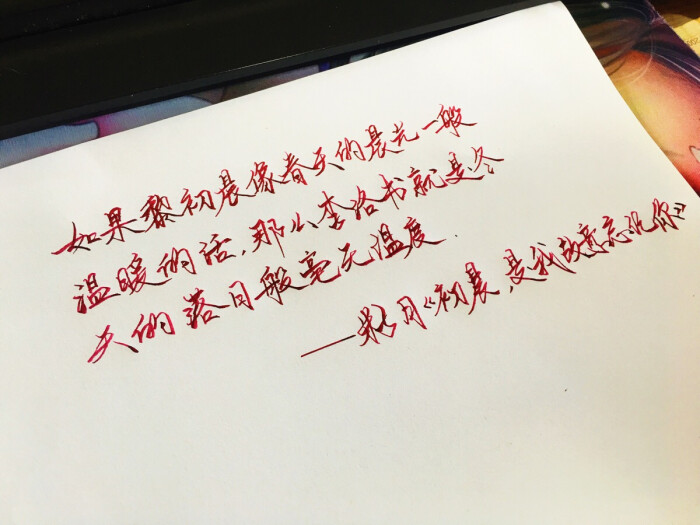 如果黎初晨像春天的晨光一般
温暖的话，那么李洛书就是冬
天的落日般毫无温度．
——籽月《初晨，是我故意忘记你》